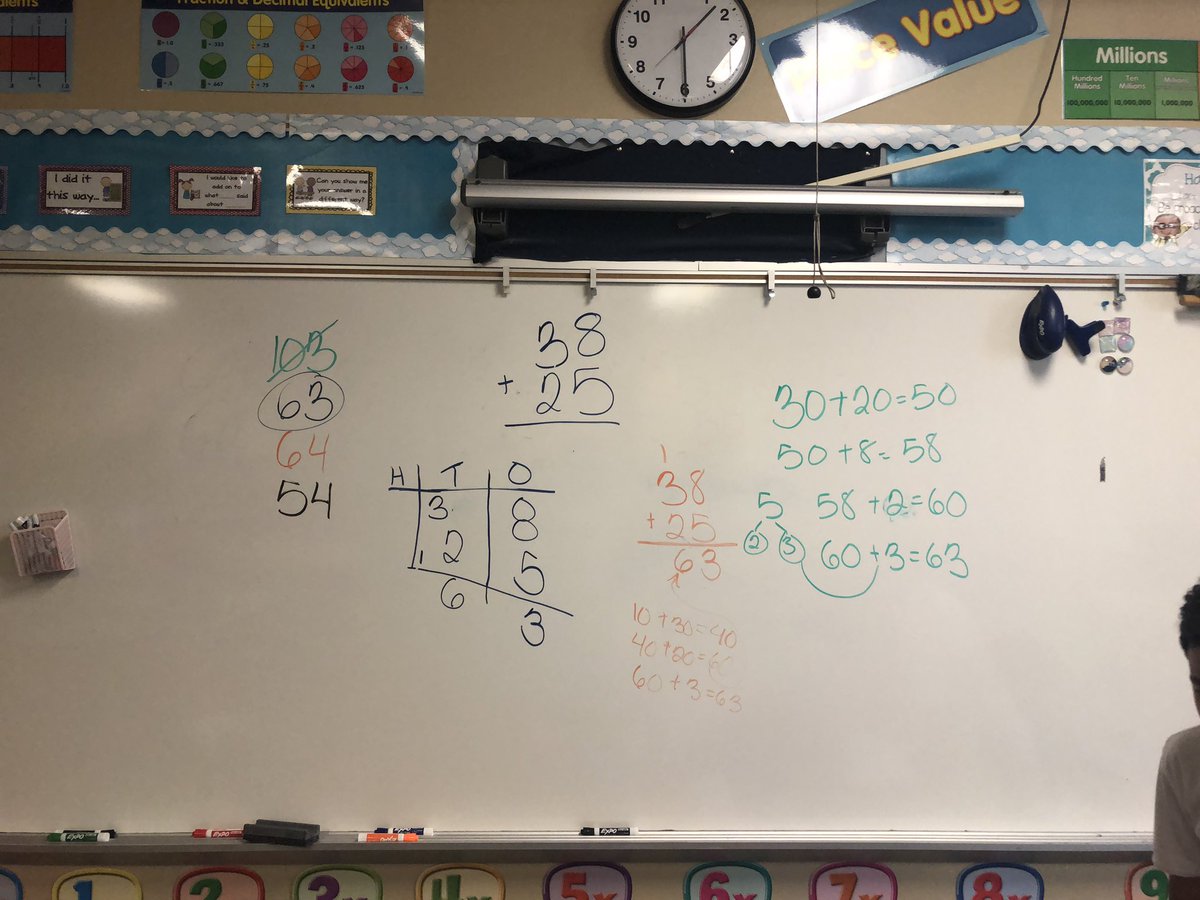 Fraction & Decimal Equivalents
Place Value
Millions
Hundred Millions
Ten Millions
Millions
100,000,000
10,000,000
1,000,000
10
11
1
2
3
5
6
7
8
9
I did it
this way...
I would like to
add on to
what ___ said
about
Can you show me
your answer in a
different way?
103
63
64
54
38
+ 25
H T O
3 8
1 2 5
6 3
1
38
+ 25
63
10 + 30 = 40
40 + 20 = 60
60 + 3 = 63
30 + 20 = 50
50 + 8 = 58
5 58 + 2 = 60
2 3 60 + 3 = 63
EXPO
EXPO
EXPO
1x
2x
3x
4x
5x
6x
7x
8x
9